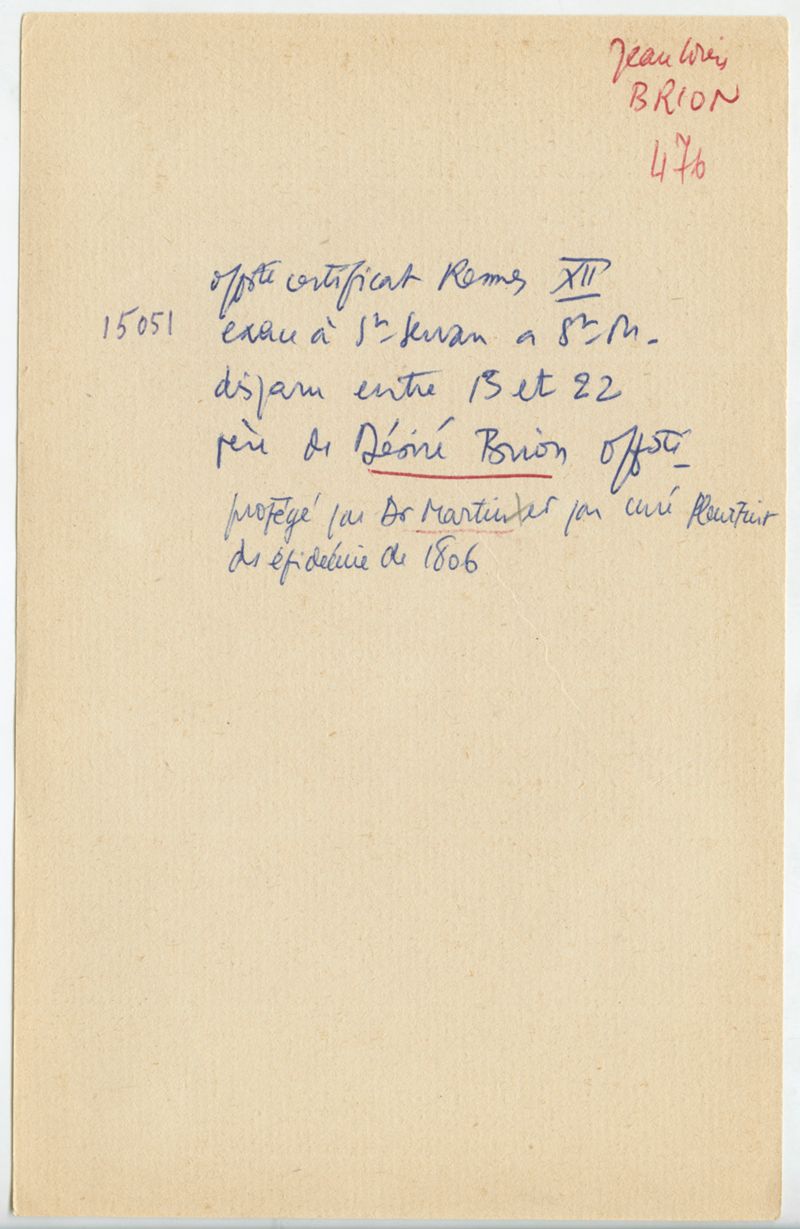 Jean Louis
BRION
476
offsté certificat Rennes XII
15051
exau à St-Servan a St-M.
disparu entre 15 et 22
père de Désiré Brion offsté
protégé par Dr Martin et par curé Pleurtuit
ds épidémie de 1806